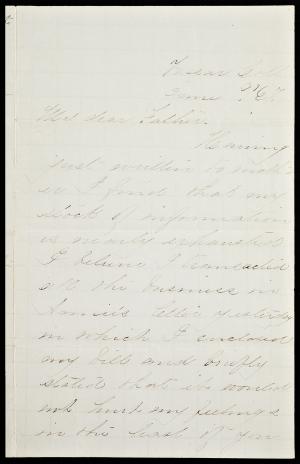 Vassar Coll.
My dear Father.
Having
just written to moth-
er I find that my
stock of information
is nearly exhausted
I believe I transacted
all the business in
Annie's letter yesterday
in which I enclosed
my bill and briefly
stated that it would
not hurt my feelings
in the least if you